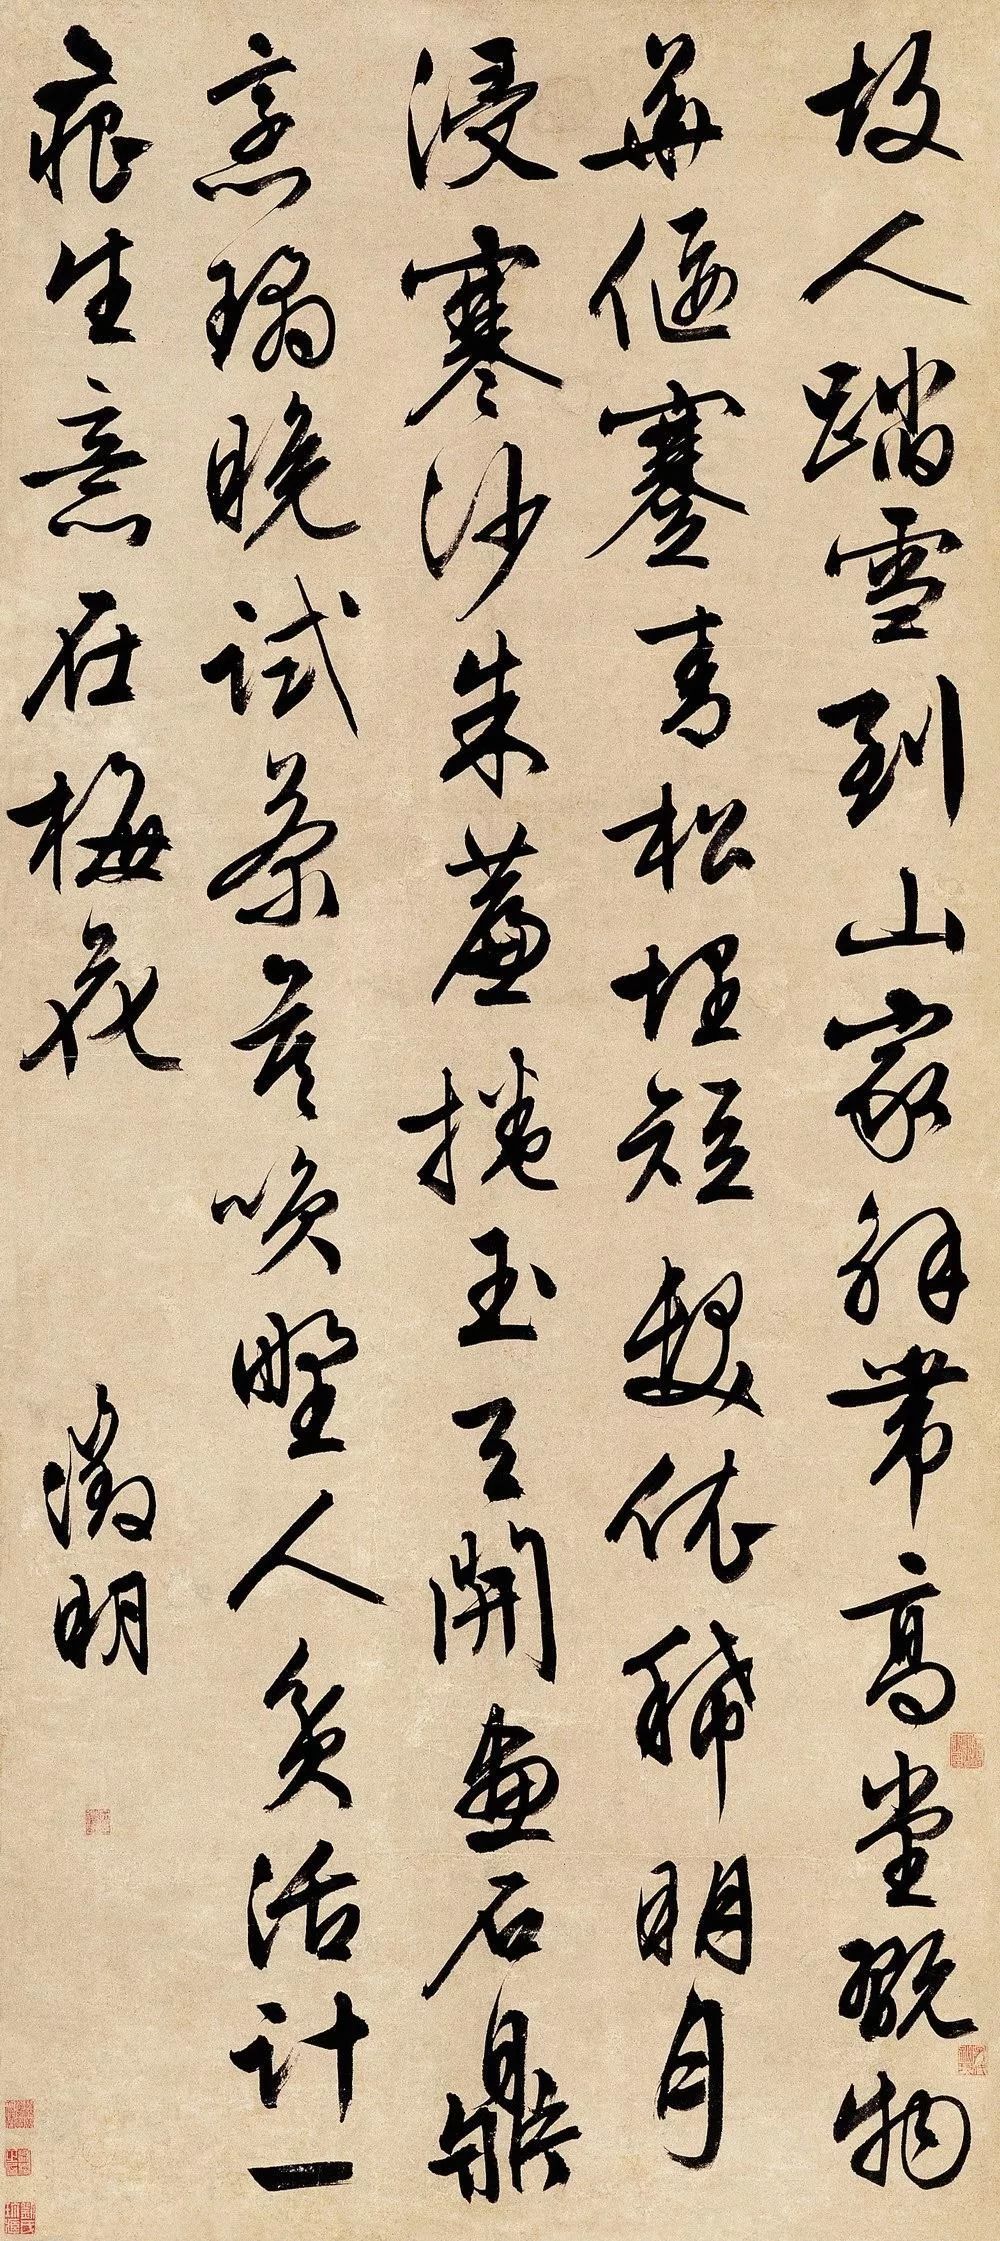 故人踏雪到山家解帶高堂翫物
華偃蹇青松埋短髮依稀明月
浸寒沙朱簾捲玉天開畫石鼎
烹璚晚試茶莫咲野人貧活計一
痕生意在梅花
徵明